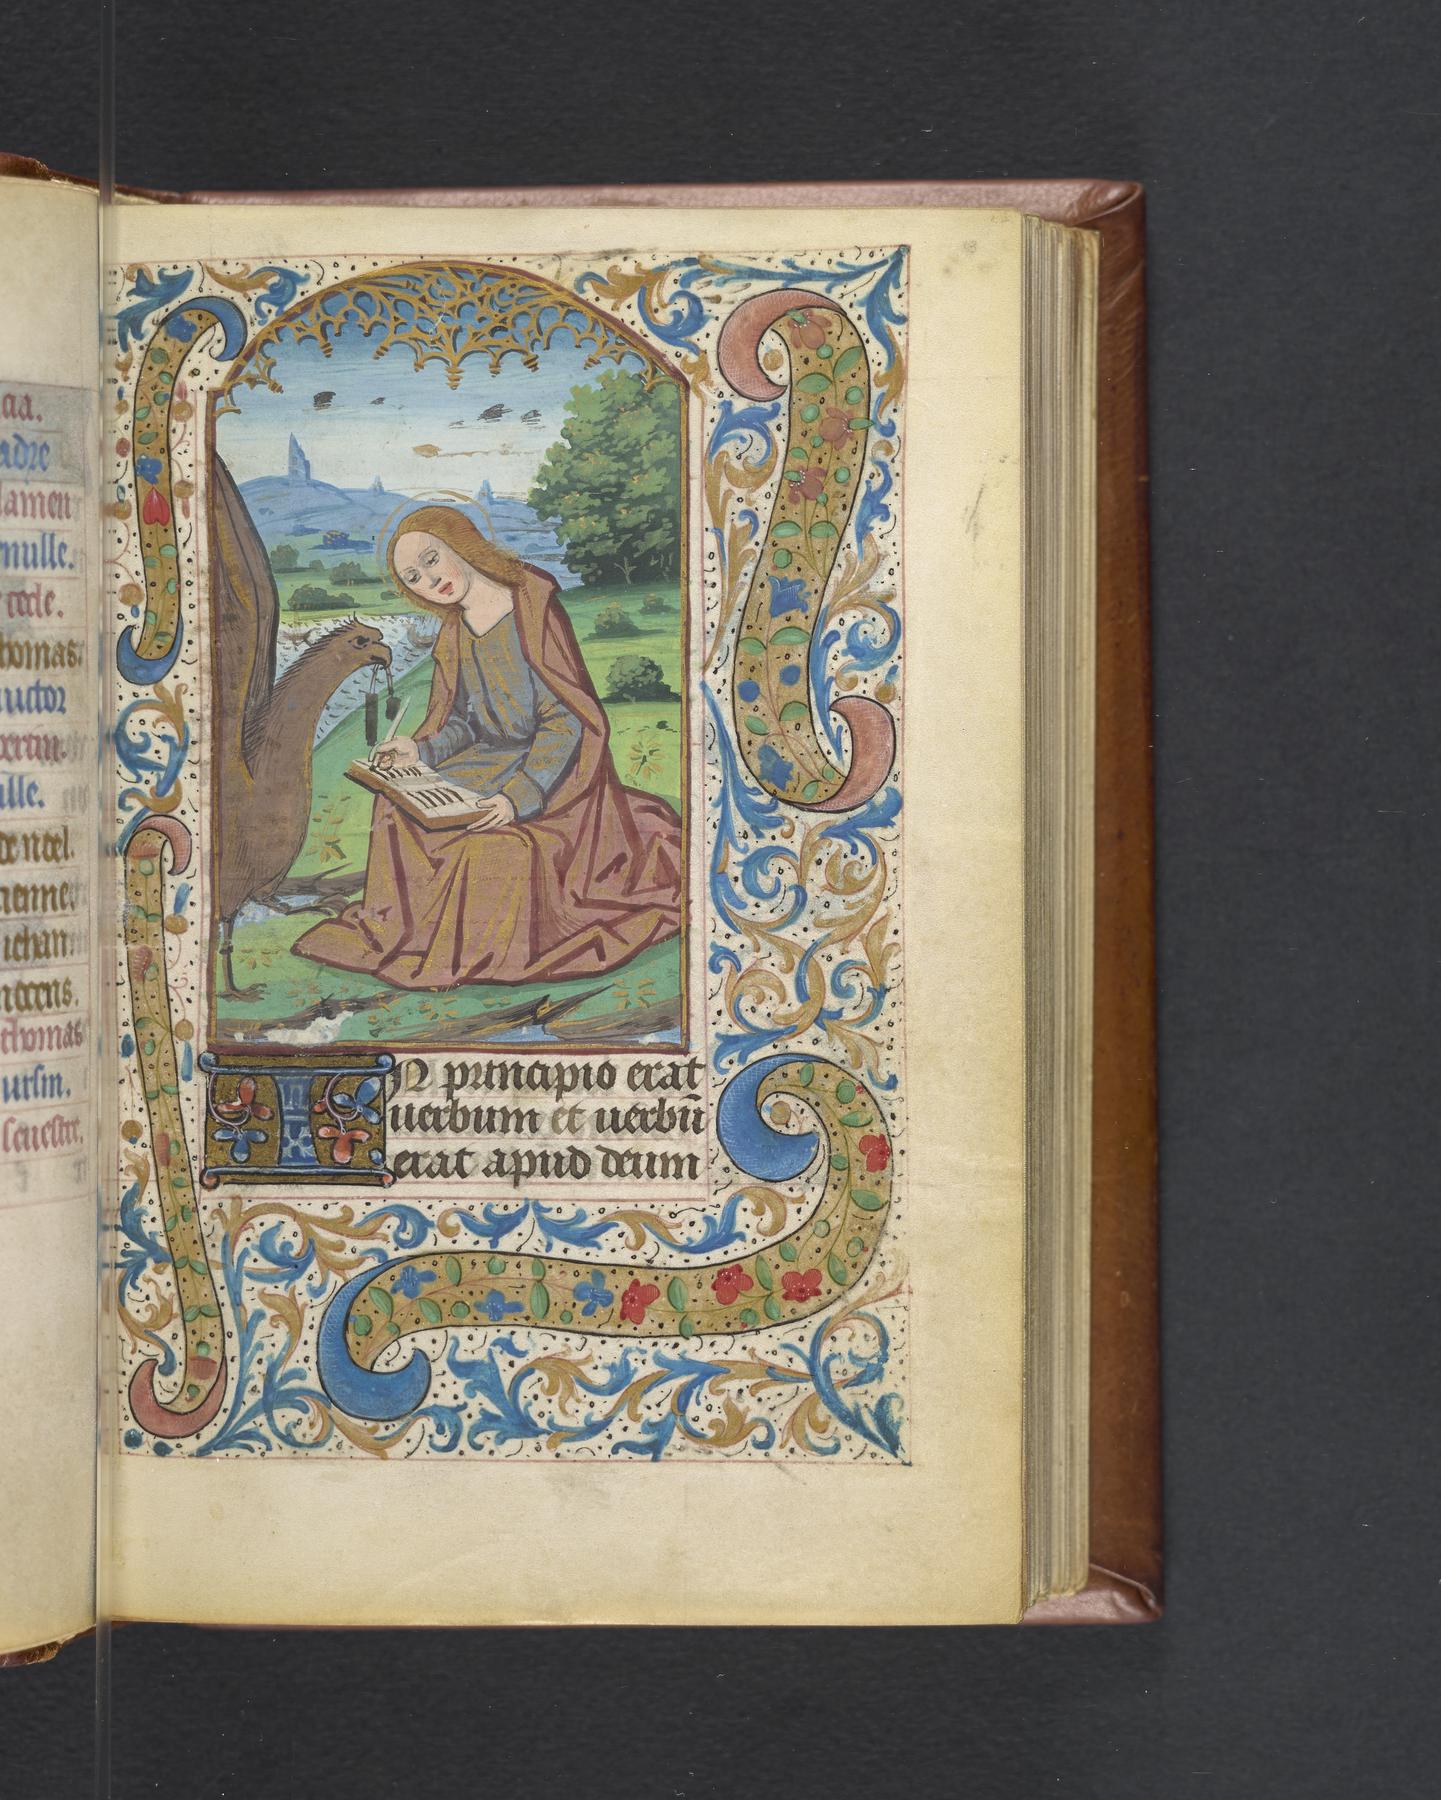 cia.
adre
lamen
mulle.
cecle.
thomas.
uictor
ille.
de noel.
ienne
iehan
nocens.
thomas
ursin.
seuestre.
IN principio erat
uerbum et uerbū
erat apud deum